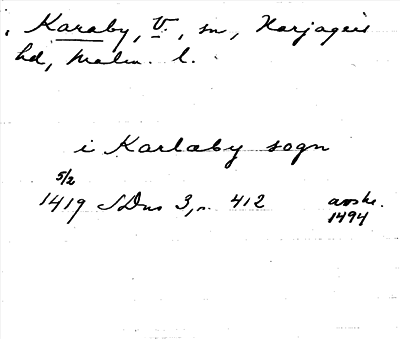 Karaby, V., sn, Harjagers
hd, Malm. l.
i Karlæby sogn
5/2
1419 SDns 3, n. 412 avskr.
1494